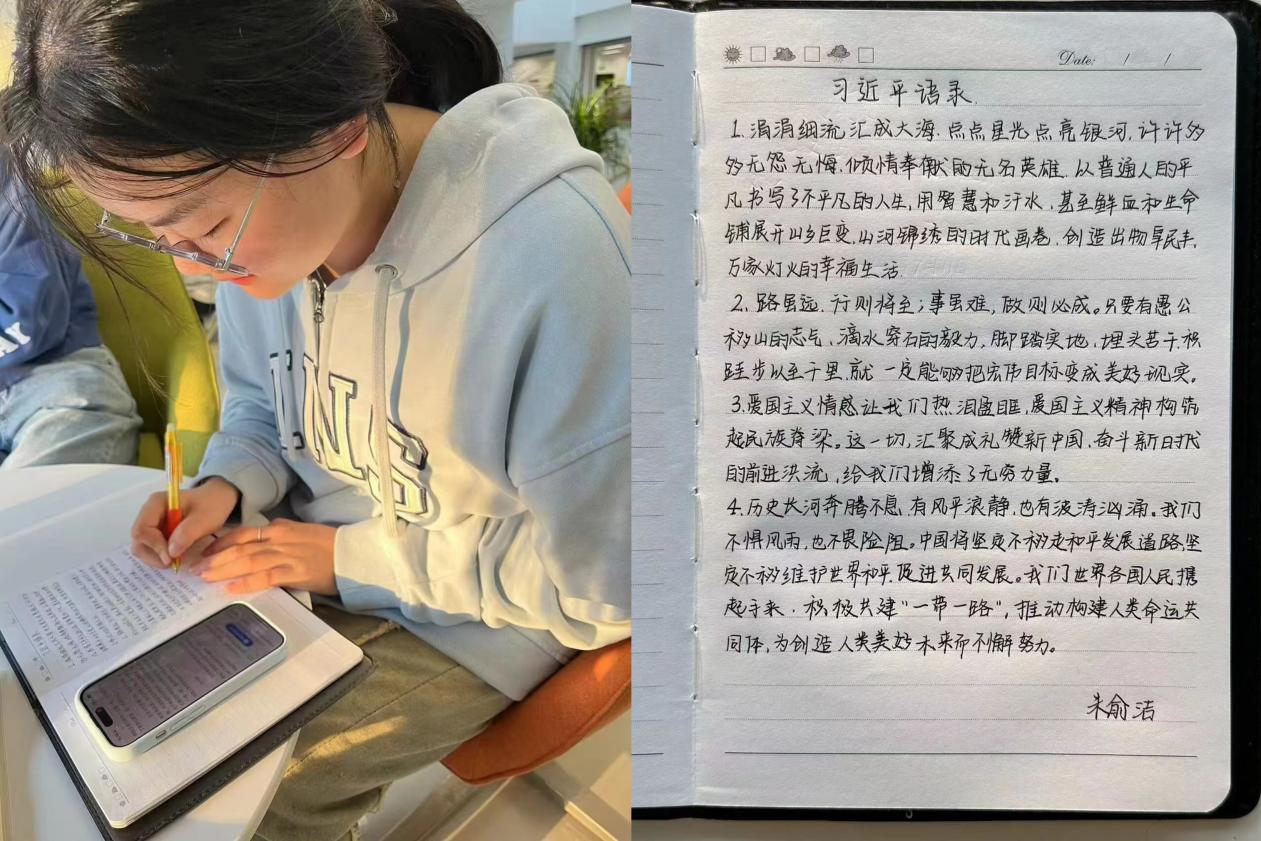 AY
INS
Date: / /
习近平语录
1.涓涓细流,汇成大海,点点星光,点亮银河,许许多
多无怨无悔,倾情奉献的无名英雄,以普通人的平
凡书写了不平凡的人生,用智慧和汗水,甚至鲜血和生命
铺展开山乡巨变,山河锦绣的时代画卷,创造出物阜民丰,
万家灯火的幸福生活
2.路虽远,行则将至;事虽难,做则必成。只要有愚公
移山的志气,滴水穿石的毅力,脚踏实地,埋头苦干,积
跬步以至千里,就一定能够把宏伟目标变成美好现实。
3.爱国主义情感让我们热泪盈眶,爱国主义精神构筑
起民族脊梁。这一切,汇聚成礼赞新中国,奋斗新时代
的前进洪流,给我们增添了无穷力量。
4.历史长河奔腾不息,有风平浪静,也有波涛汹涌。我们
不惧风雨,也不畏险阻。中国将坚定不移走和平发展道路,坚
定不移维护世界和平,促进共同发展。我们世界各国人民携
起手来,积极共建“一带一路”,推动构建人类命运共
同体,为创造人类美好未来而不懈努力。
朱俞洁